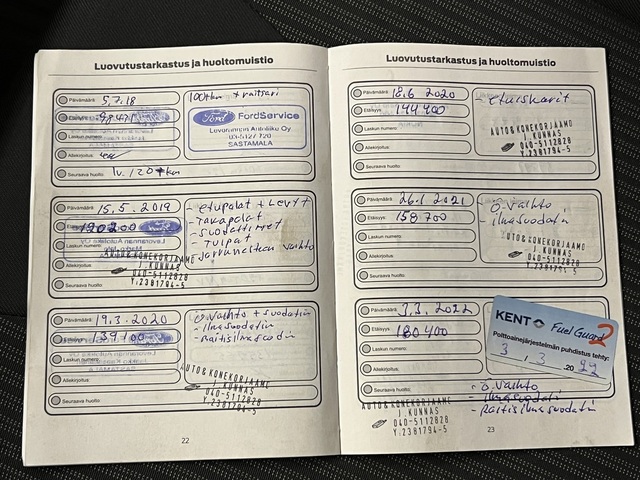 Luovutustarkastus ja huoltomuistio
Päivämäärä: 5.7.18
100tkm + raitisari
Etäisyys:
Ford FordService
Levorannan Autoliike Oy
03-5127 720
SASTAMALA
Laskun numero:
Allekirjoitus:
Seuraava huolto: 1v. 120tkm
Päivämäärä: 15.5.2019
- etupalat + levyt
- takapalat
Etäisyys: 120200
- suodattimet
Laskun numero:
- tulpat
- jarrunesteen vaihto
Allekirjoitus:
AUTO & KONEKORJAAMO
J. KUNNAS
040-5112828
Y.2381794-5
Seuraava huolto:
Päivämäärä: 19.3.2020
ö.vaihto + suodatin
- ilmasuodatin
Etäisyys: 139100
- raitisilmasuodatin
Laskun numero:
Allekirjoitus:
AUTO & KONEKORJAAMO
J. KUNNAS
040-5112828
Y.2381794-5
Seuraava huolto:
22
Luovutustarkastus ja huoltomuistio
Päivämäärä: 18.6 2020
- etuiskarit
Etäisyys: 144400
Laskun numero:
AUTO & KONEKORJAAMO
J. KUNNAS
040-5112828
Y.2381794-5
Allekirjoitus:
Seuraava huolto:
Päivämäärä: 26.1 2021
ö.vaihto
Etäisyys: 158700
- ilmasuodatin
Laskun numero:
AUTO & KONEKORJAAMO
J. KUNNAS
040-5112828
Y.2381794-5
Allekirjoitus:
Seuraava huolto:
Päivämäärä: 3.3.2022
Etäisyys: 180400
KENT Fuel Guard 2
Polttoainejärjestelmän puhdistus tehty:
3 . 3 .20 22
Laskun numero:
Allekirjoitus:
Seuraava huolto:
- ö.vaihto
- ilmasuodatin
- raitisilmasuodatin
AUTO & KONEKORJAAMO
J. KUNNAS
040-5112828
Y.2381794-5
23